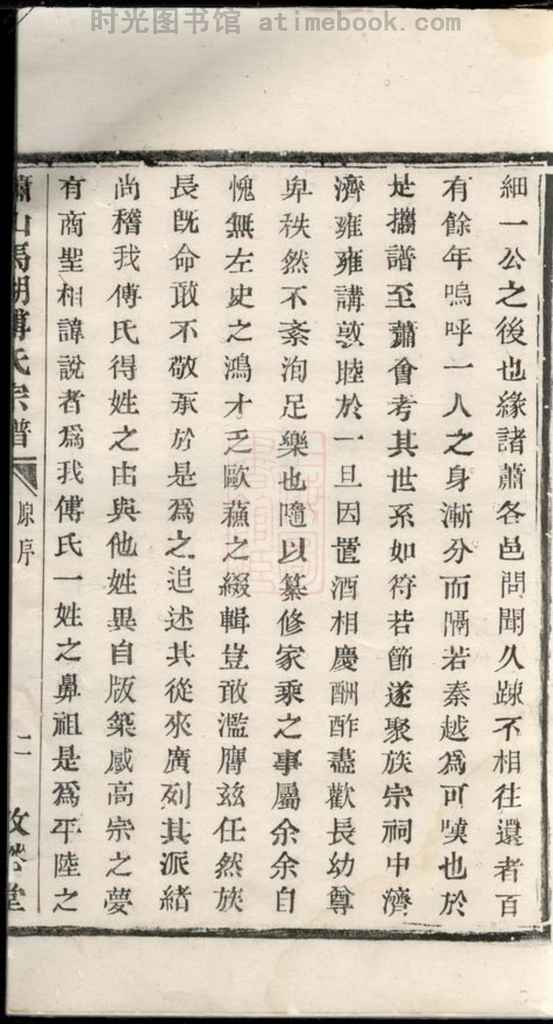 时光图书馆 atimebook.com
細一公之後也緣諸蕭各邑問聞久踈不相往還者百
有餘年嗚呼一人之身漸分而隔若秦越爲可嘆也於
是攜譜至蕭會考其世系如符若節遂聚族宗祠中濟
濟雍雍講敦睦於一旦因置酒相慶酬酢盡歡長幼尊
卑秩然不紊洵足樂也隨以纂修家乘之事屬余余自
愧無左史之鴻才乏歐蘇之綴輯豈敢濫膺兹任然族
長旣命敢不敬承於是爲之追述其從來廣列其派緒
尚稽我傅氏得姓之由與他姓異自版築感高宗之夢
有商聖相諱說者爲我傅氏一姓之鼻祖是爲平陸之
蕭山馬湖傅氏宗譜
原序
二
堂